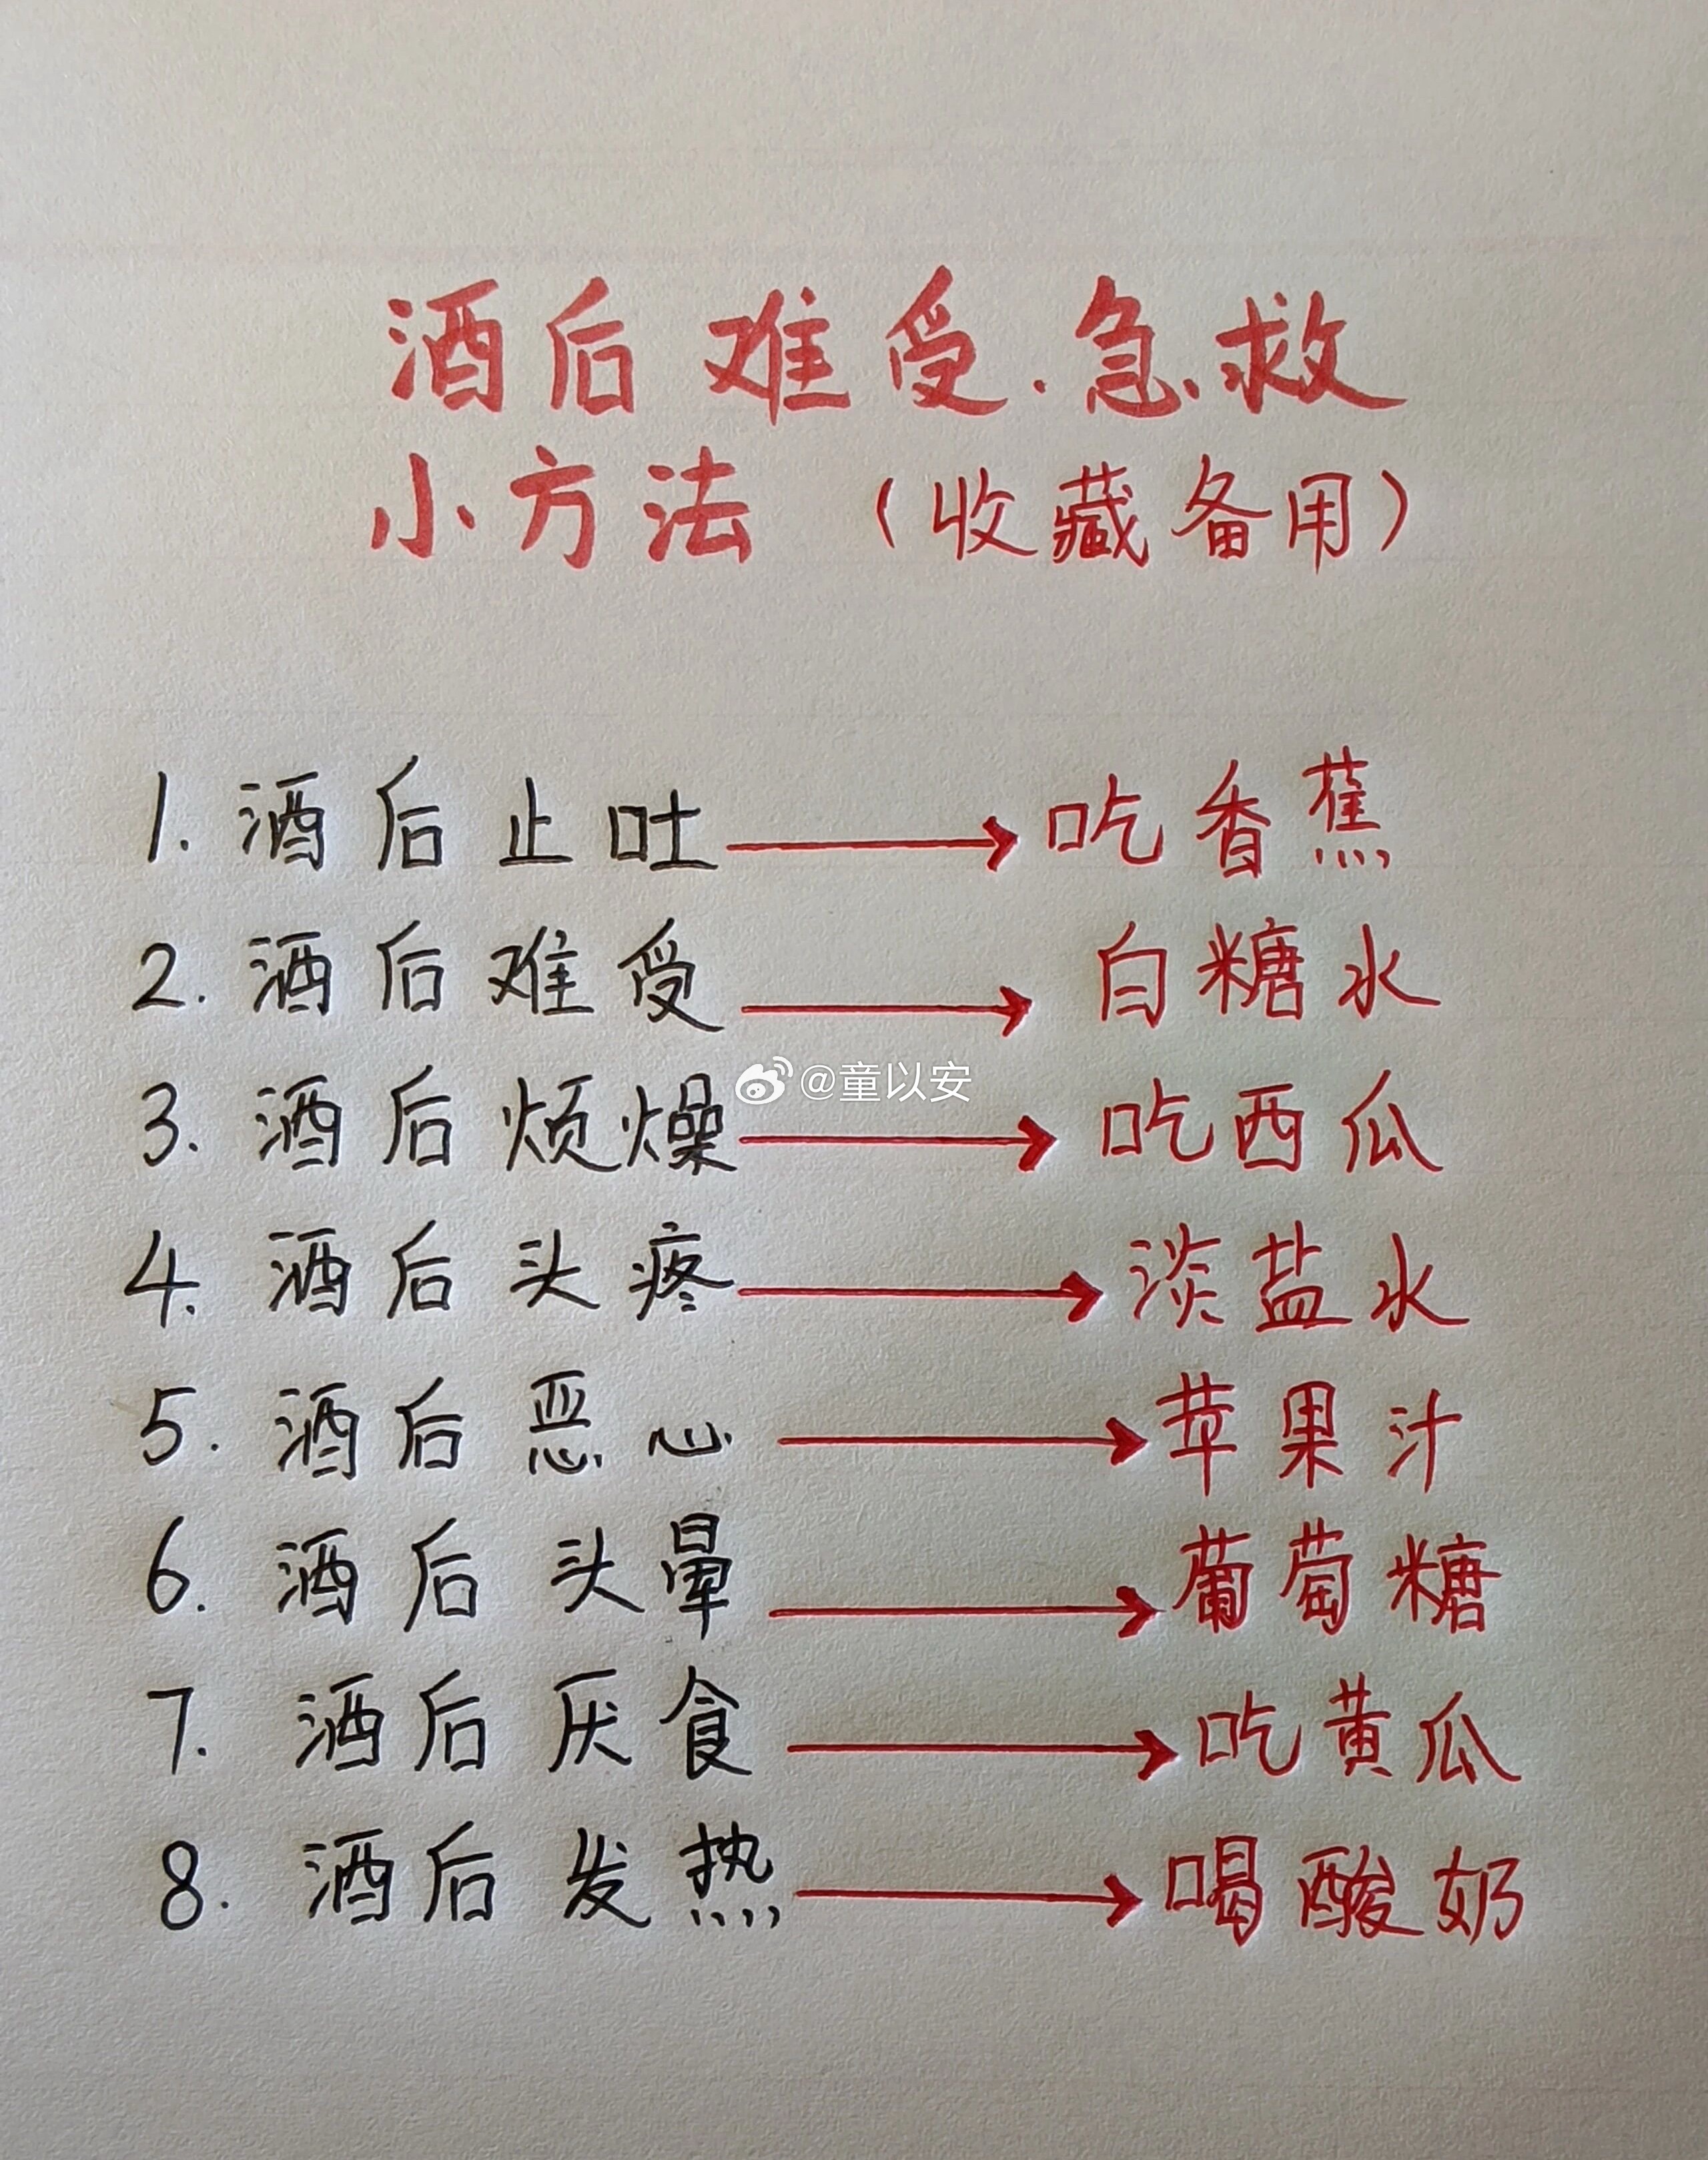 酒后难受.急救
小方法（收藏备用）
1.酒后止吐→吃香蕉
2.酒后难受→白糖水
@童以安
3.酒后烦燥→吃西瓜
4.酒后头疼→淡盐水
5.酒后恶心→苹果汁
6.酒后头晕→葡萄糖
7.酒后厌食→吃黄瓜
8.酒后发热→喝酸奶